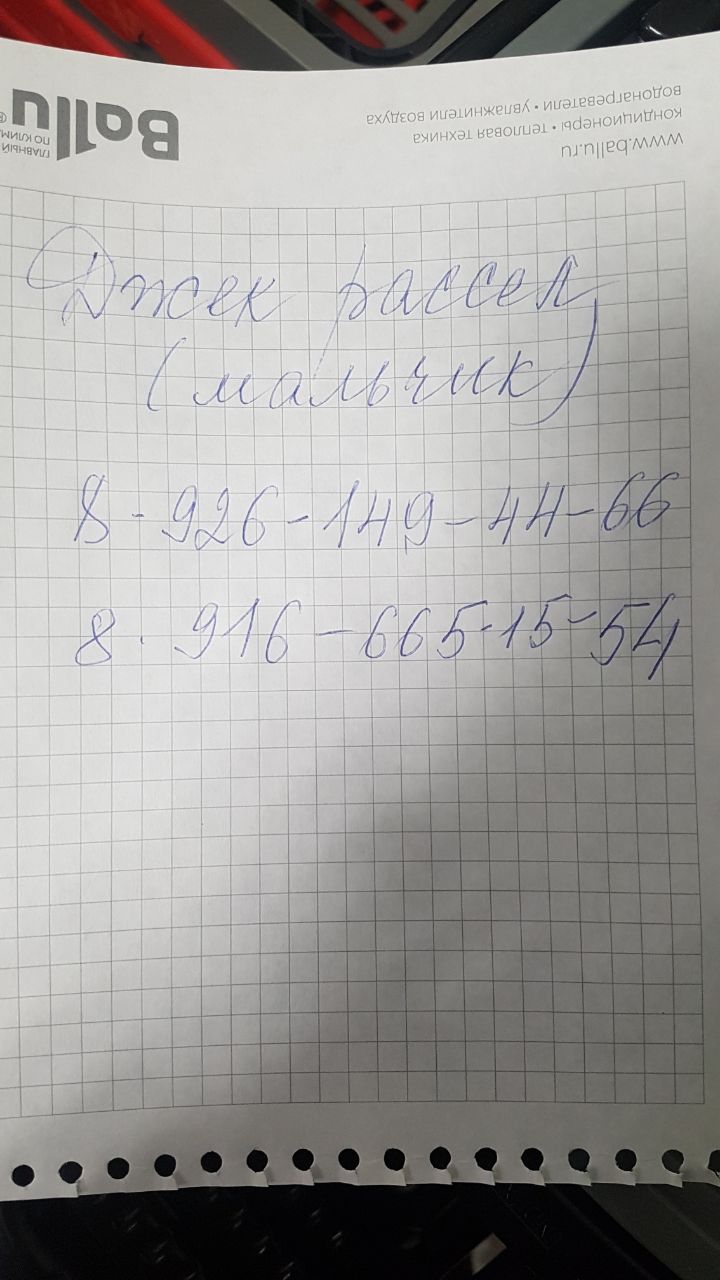 Ballu®
ГЛАВНЫЙ
ПО КЛИМ
www.ballu.ru
кондиционеры • тепловая техника
водонагреватели • увлажнители воздуха
Джек рассел
(мальчик)
8 - 926 - 149 - 44 - 66
8 . 916 - 665-15-54